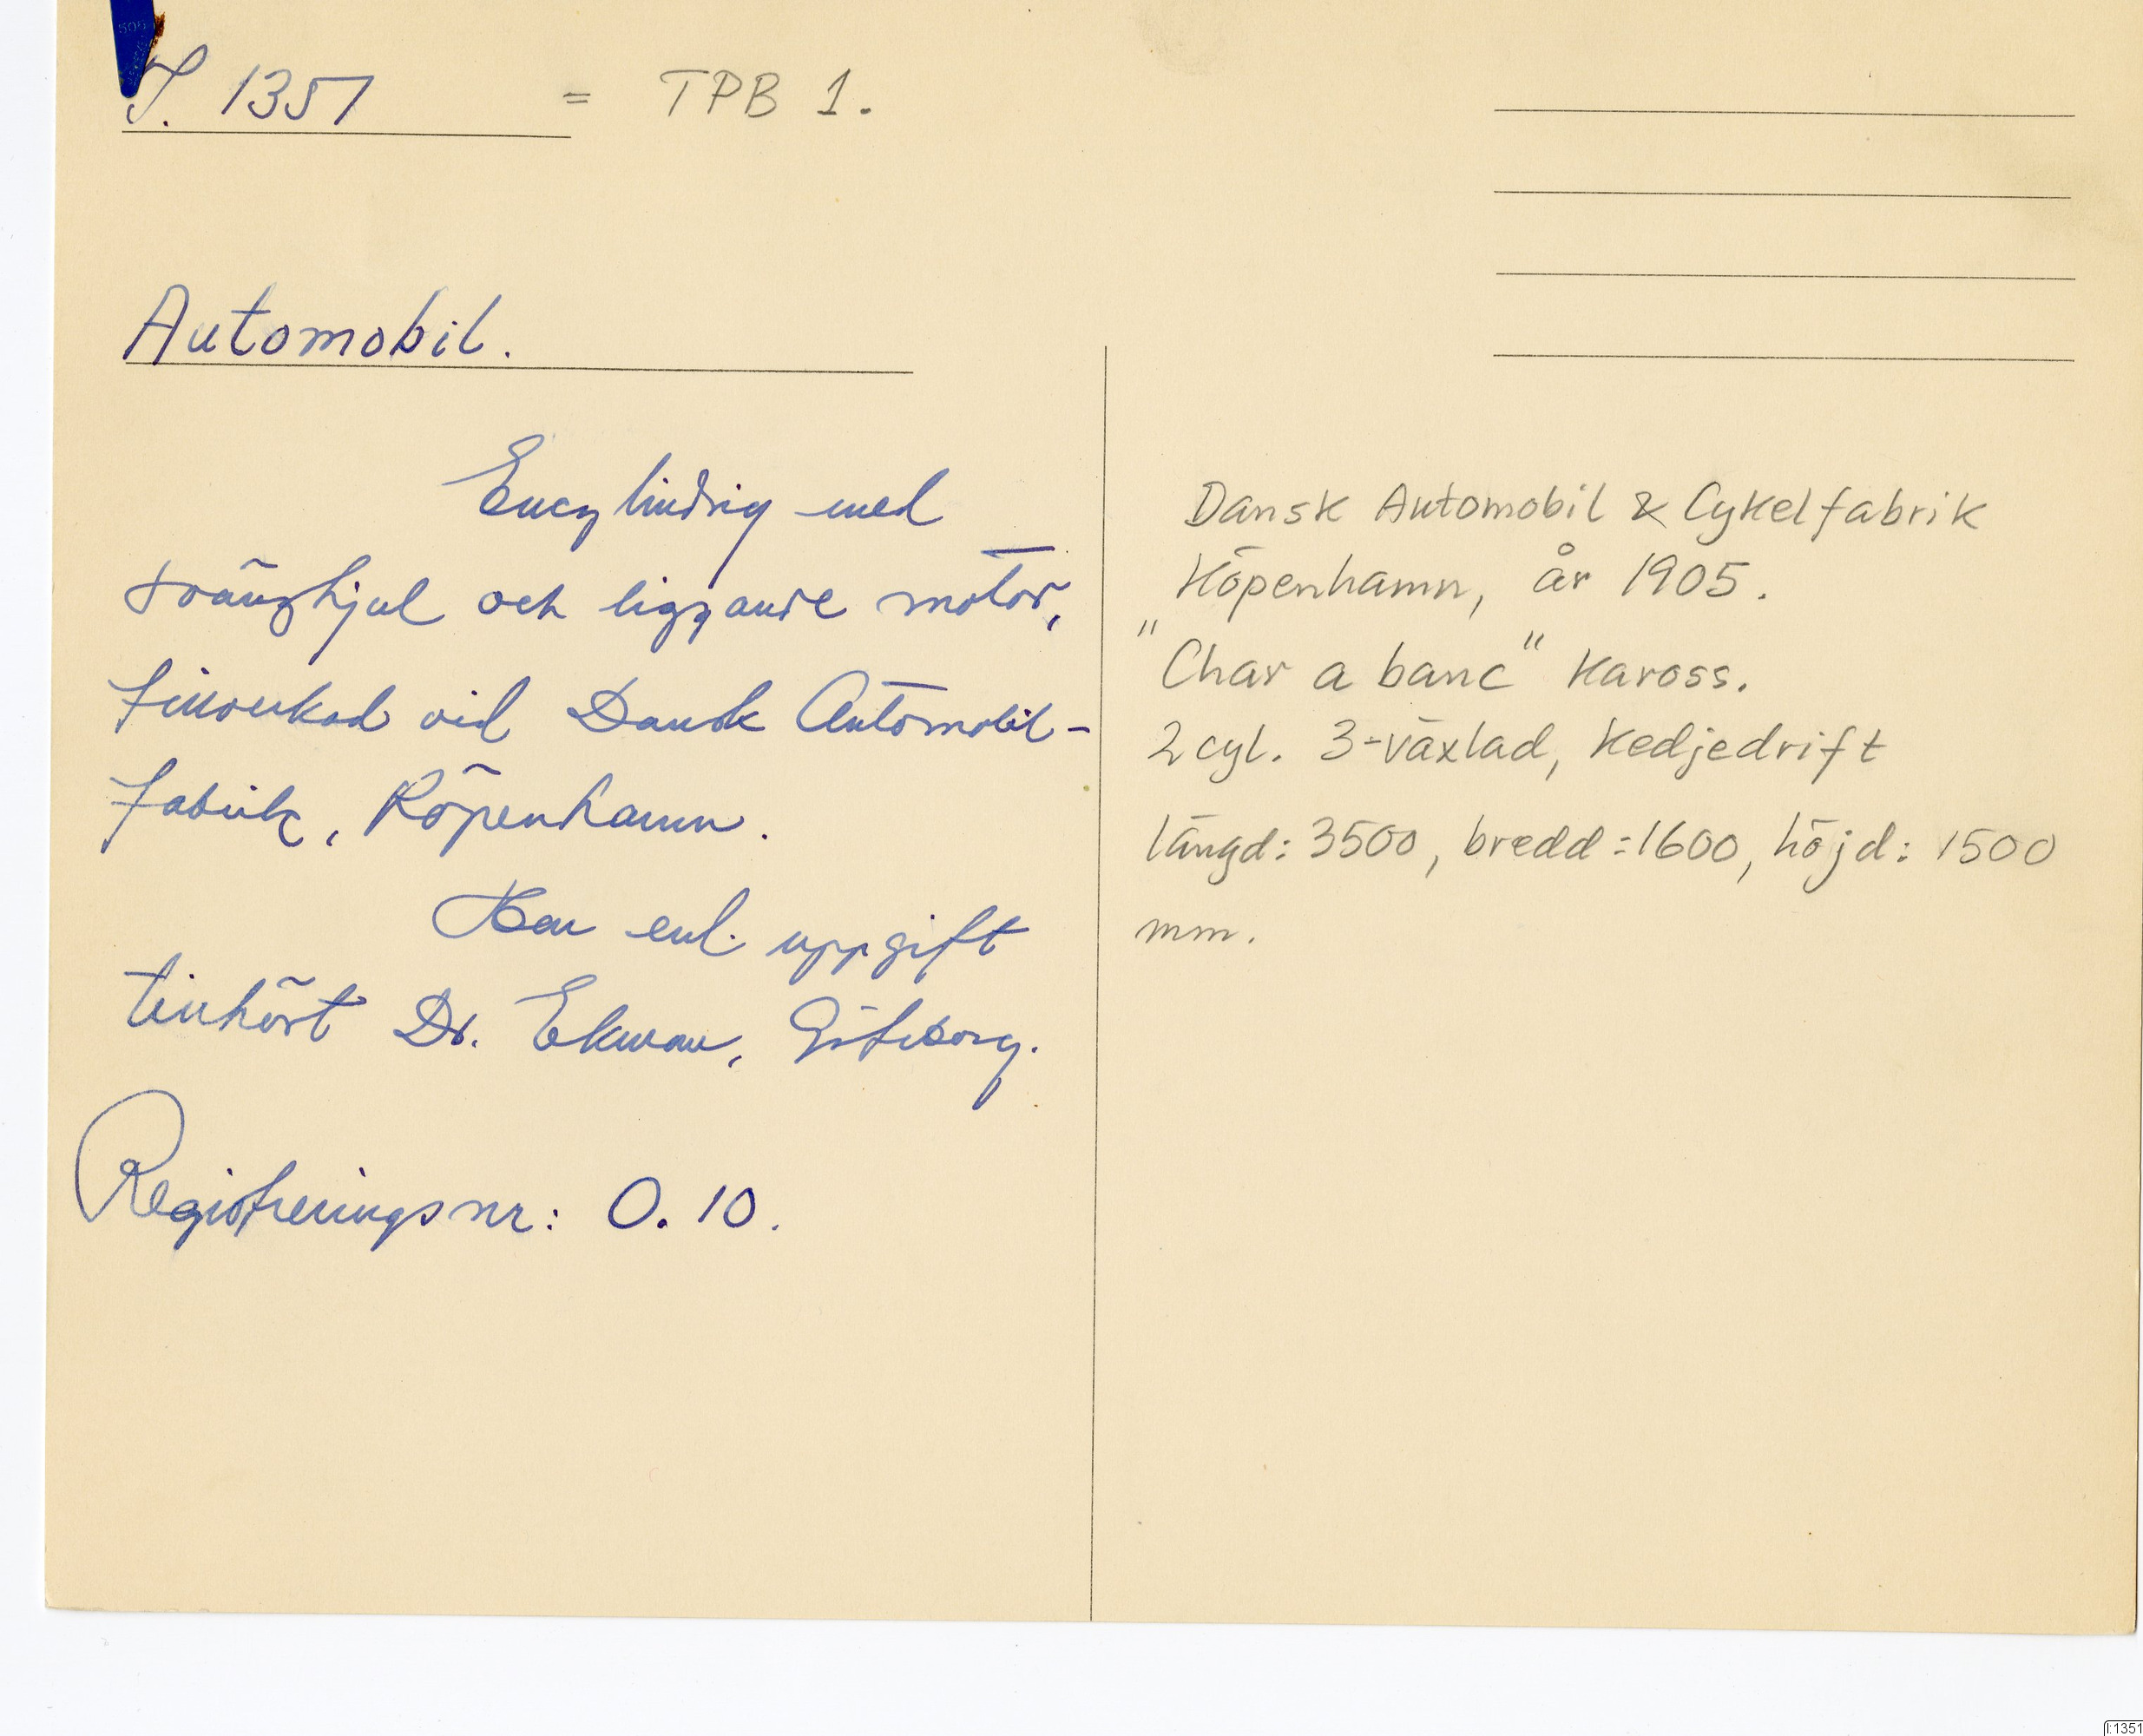 I. 1351 = TPB 1.
Automobil.
Encylindrig med
svänghjul och liggande motor,
tillverkad vid Dansk Automobil-
fabrik, Köpenhamn.
Har enl. uppgift
tillhört Dr. Ekman, Göteborg.
Registreringsnr: O. 10.
Dansk Automobil & Cykelfabrik
Köpenhamn, år 1905.
"Char a banc" Kaross.
2 cyl. 3-växlad, Kedjedrift
längd: 3500, bredd: 1600, höjd: 1500
mm.
I:1351